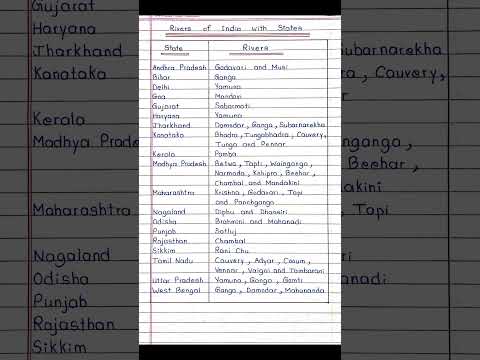 Rivers of India with States
State Rivers
Andhra Pradesh Godavari and Musi
Bihar Ganga
Delhi Yamuna
Goa Mandovi
Gujarat Sabarmati
Haryana Yamuna
Jharkhand Damodar, Ganga, Subarnarekha
Kanataka Bhadra, Tungabhadra, Cauvery,
Tunga and Pennar
Kerala Pamba
Madhya Pradesh Betwa, Tapti, Wainganga,
Narmada, Kshipra, Beehar,
Chambal and Mandakini
Maharashtra Krishna, Godavari, Tapi
and Panchganga
Nagaland Diphu and Dhansiri
Odisha Brahmini and Mahanadi
Punjab Satluj
Rajasthan Chambal
Sikkim Rani Chu
Tamil Nadu Cauvery, Adyar, Cooum,
Vennar, Vaigai and Tambarani
Uttar Pradesh Yamuna, Ganga, Gomti
West Bengal Ganga, Damodar, Mahananda
Gujarat
Haryana
Jharkhand
Kanataka
Kerala
Madhya Prade
Maharashtra
Nagaland
Odisha
Punjab
Rajasthan
Sikkim
Subarnarekha
Cauvery,
nganga,
Beehar,
kini
Tapi
nadi